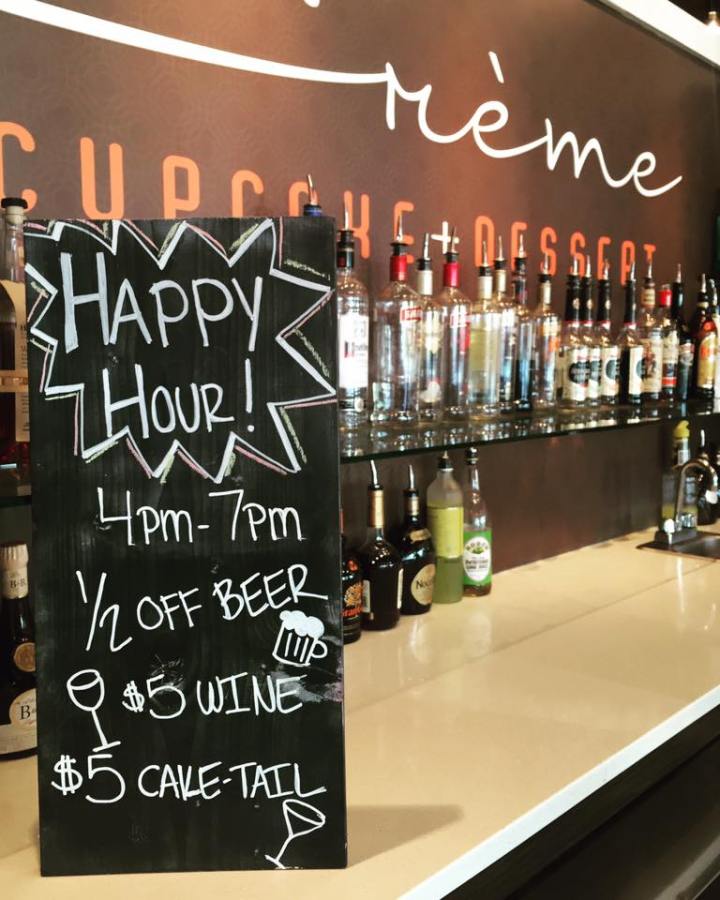 rème
CUPCAKE + DESSERT
HAPPY
HOUR!
4pm-7pm
1/2 OFF BEER
$5 WINE
$5 CAKE-TAIL